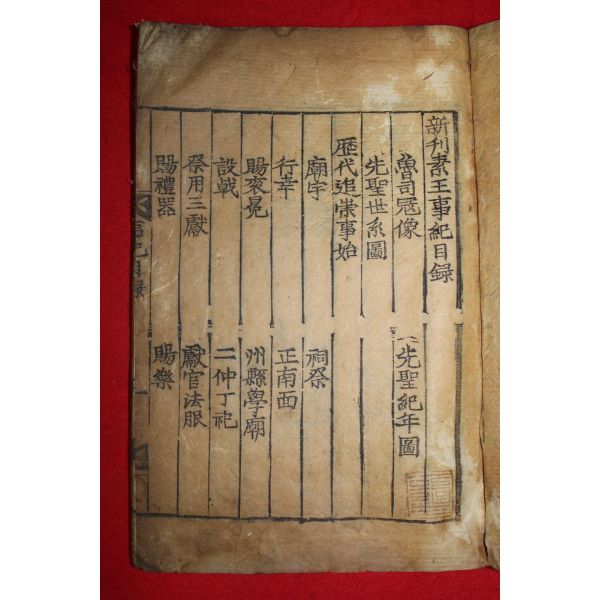 新刊素王事紀目録
魯司冠像
先聖紀年圖
先聖世系圖
歷代追崇事始
廟宇
祠祭
行幸
正南面
賜衮冕
州縣學廟
設戟
二仲丁祀
祭用三獻
獻官法服
賜禮器
賜樂
事紀目録